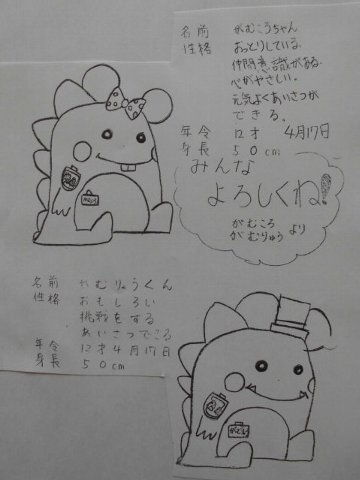 名前 がむこうちゃん
性格 おっとりしている。
仲間意識がある。
心がやさしい。
元気よくあいさつが
できる。
年令 12才 4月17日
身長 50cm
みんな
よろしくね!
がむころ
がむりゅう より
名前 がむりゅうくん
性格 おもしろい
挑戦をする
あいさつできる
年令 12才 4月17日
身長 50cm